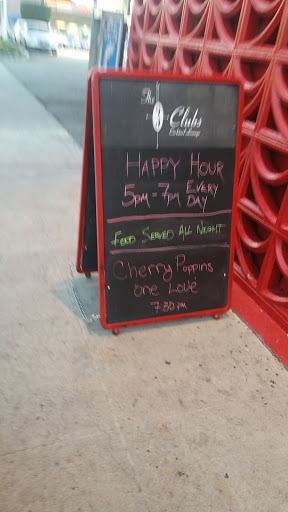 The
Clubs
Cocktail Lounge
HAPPY HOUR
5PM - 7PM EVERY DAY
FOOD SERVED ALL NIGHT
Cherry Poppins
one Love
730 PM